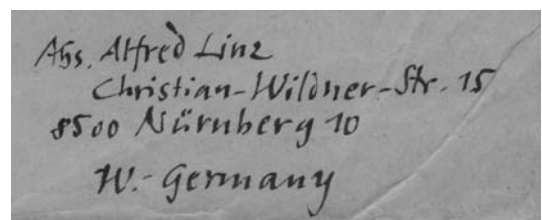 Abs. Alfred Linz
Christian-Wildner-Str. 15
8500 Nürnberg 10
W.-Germany